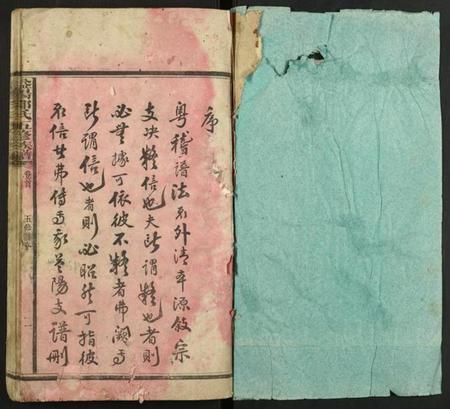 序
粤稽譜法不外清本源敘宗
支决疑信也夫所謂疑也者則
必無據可依彼不疑者弗闕焉
所謂信也者則必昭然可指彼
不信者弗傳焉我益陽支譜刪
益陽郭氏五修族譜
卷首